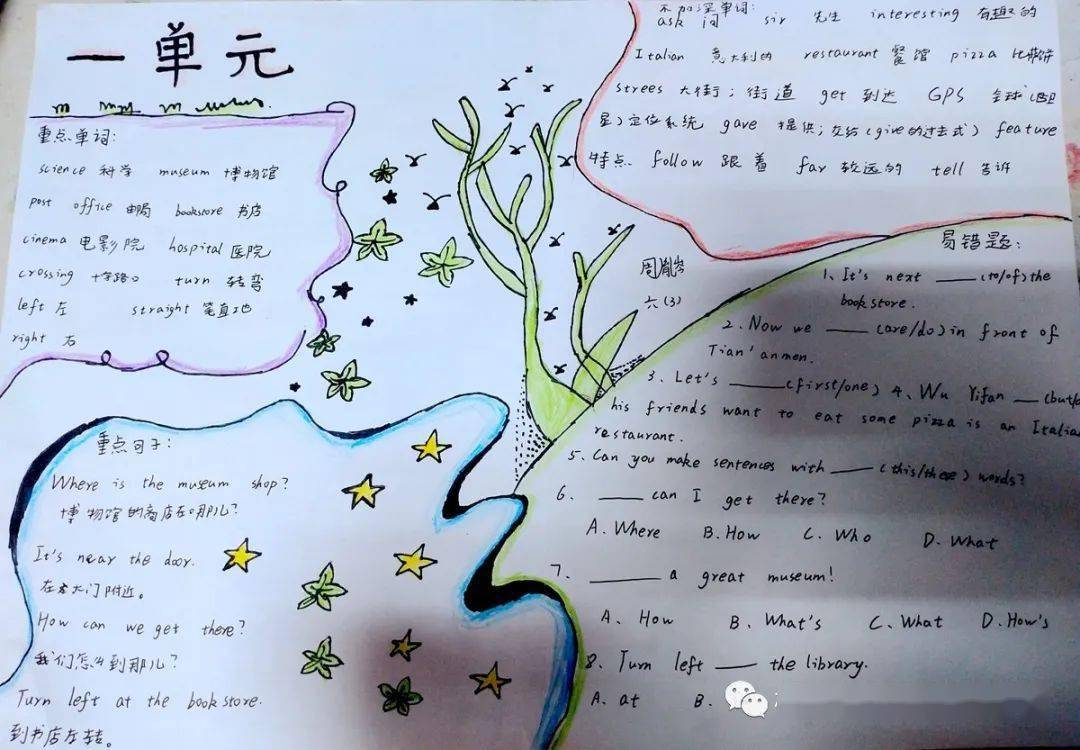 一单元
重点单词:
science 科学 museum 博物馆
post office 邮局 bookstore 书店
cinema 电影院 hospital 医院
crossing 十字路口 turn 转弯
left 左 straight 笔直地
right 右
不加深单词:
ask 问 sir 先生 interesting 有趣的
Italian 意大利的 restaurant 餐馆 pizza 比萨饼
strees 大街;街道 get 到达 GPS 全球(卫
星)定位系统 gave 提供;交给(give的过去式) feature
特点 follow 跟着 far 较远的 tell 告诉
六(3)
重点句子:
Where is the museum shop?
博物馆的商店在哪儿?
It's near the door.
在大门附近。
How can we get there?
我们怎么到那儿?
Turn left at the bookstore.
到书店左转。
易错题:
1、It's next ____ (to/of) the
bookstore.
2. Now we ____ (are/do) in front of
Tian'anmen.
3. Let's ____ (first/one) 4、Wu Yifan ___ (but/
his friends want to eat some pizza is an Italian
restaurant.
5. Can you make sentences with ____ (this/these) words?
6. ____ can I get there?
A. Where B. How C. Who D. What
7. ____ a great museum!
A、How B、What's C、What D. How's
8. Turn left ____ the library.
A. at B.